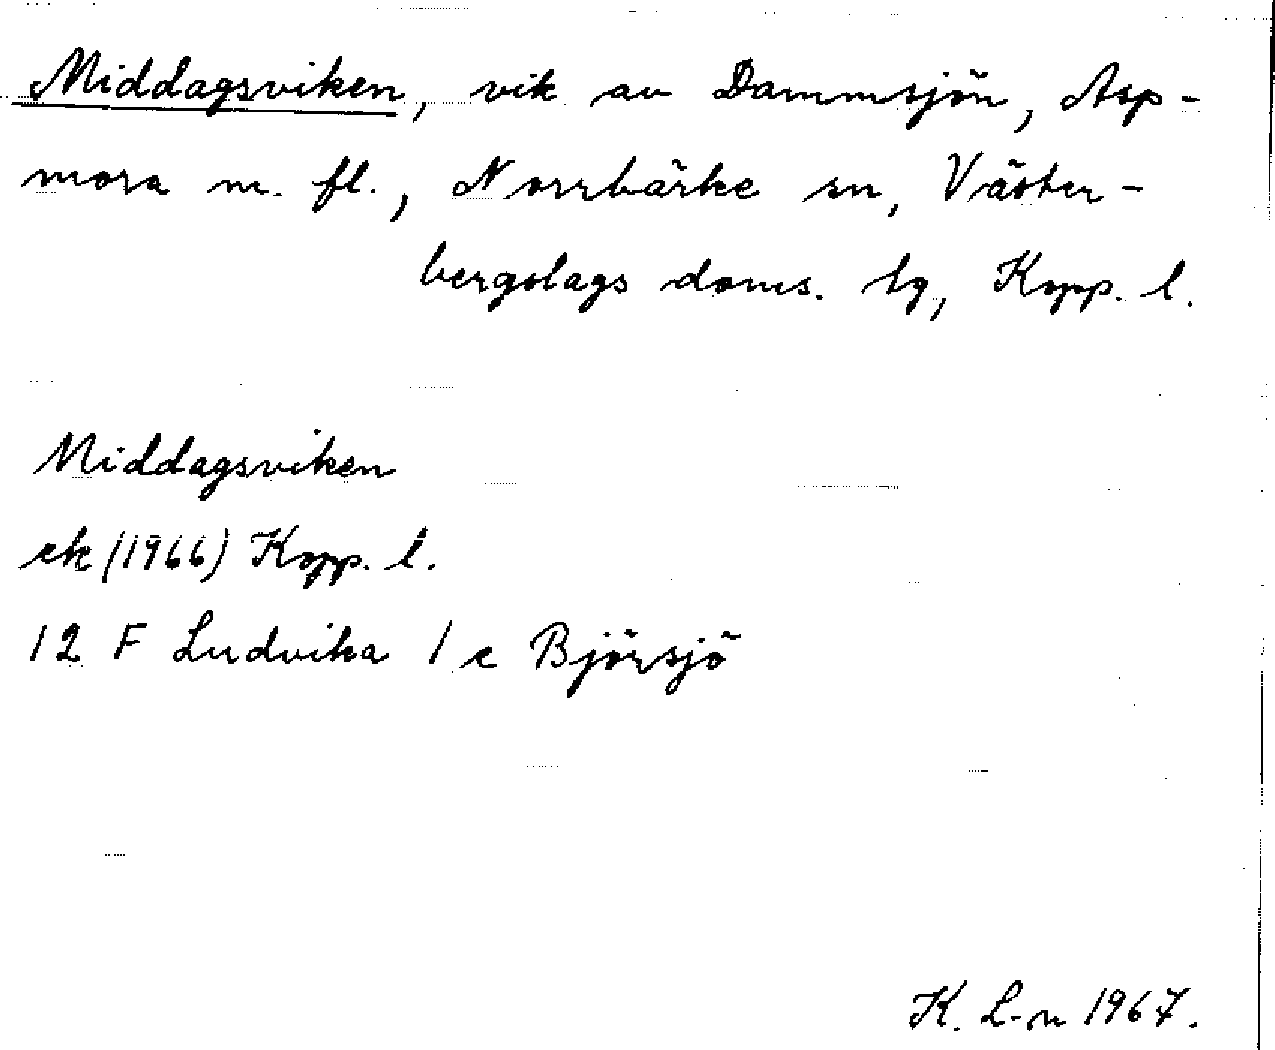 Middagsviken, vik av Dammsjön, Asp-
mora m. fl., Norrbärke sn, Väster-
bergslags doms. tg, Kopp. l.
Middagsviken
ek (1966) Kopp. l.
12 F Ludvika 1 c Björsjö
K. L-n 1967.